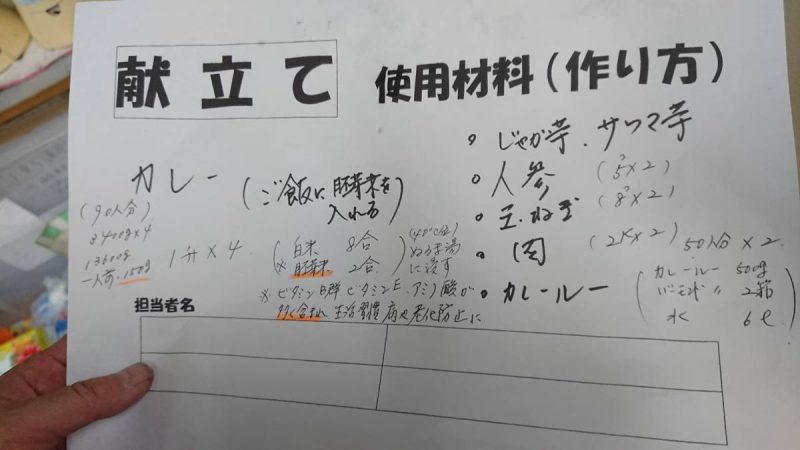 献立て
使用材料(作り方)
カレー
(ご飯に胚芽米を
入れる)
(90人分)
3400g×4
13600g
一人前150g
1升×4
(白米 8合
※胚芽米 2合)
(40℃位)
ぬるま湯
に浸す
※ビタミンB群 ビタミンE アミノ酸が
多く含まれ 生活習慣病や老化防止に
・じゃが芋、サツマ芋
・人参 (5°×2)
・玉ねぎ (8°×2)
・肉 (2K×2)
・カレールー
50人分×2
(カレールー 50g
バーモント〃 2箱
水 6ℓ)
担当者名